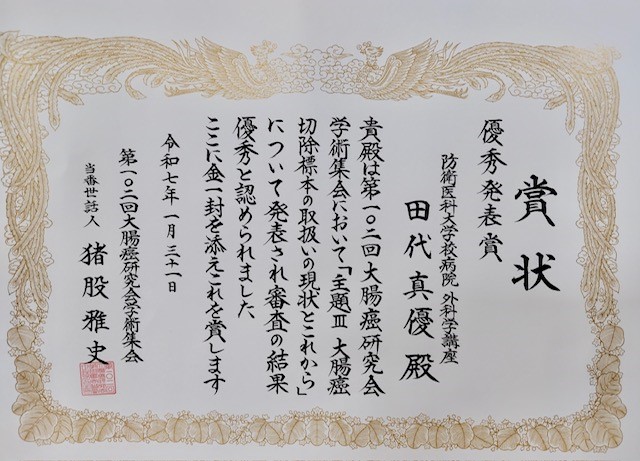 賞状
優秀発表賞
防衛医科大学校病院 外科学講座
田代真優殿
貴殿は第一〇二回大腸癌研究会
学術集会において「主題Ⅲ 大腸癌
切除標本の取扱いの現状とこれから」
について発表され審査の結果
優秀と認められました
ここに金一封を添えこれを賞します
令和七年一月三十一日
第一〇二回大腸癌研究会学術集会
当番世話人 猪股雅史